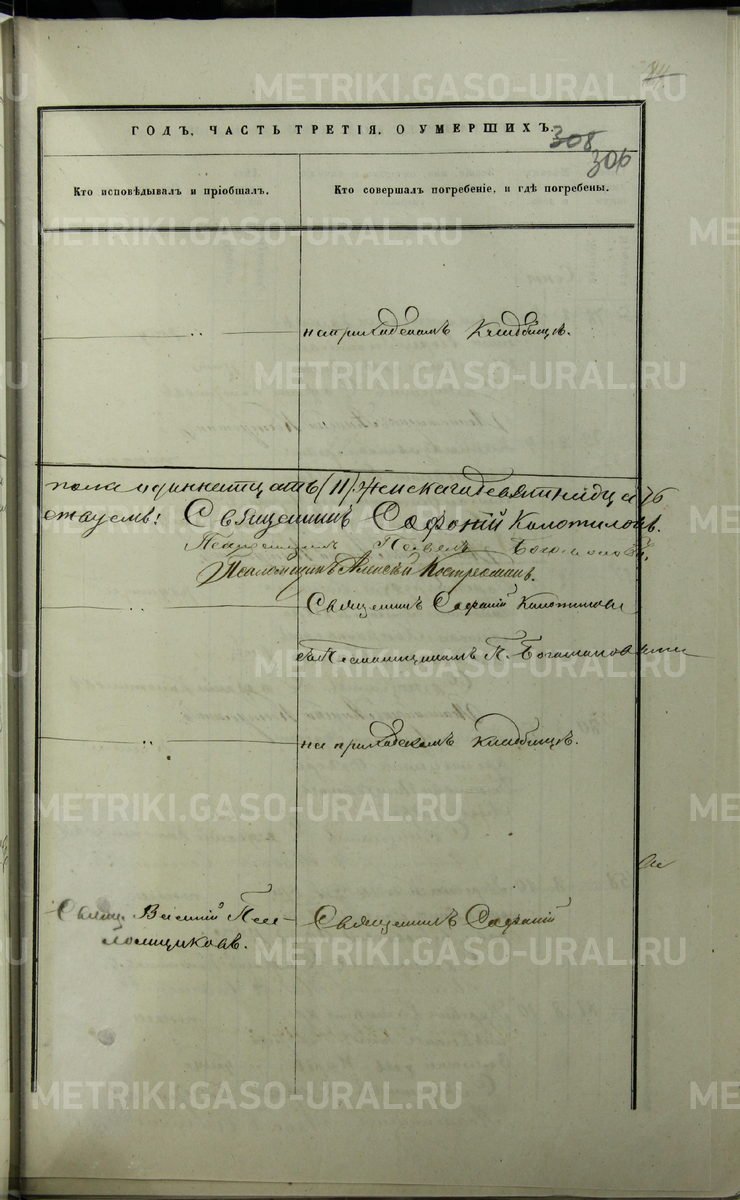 308
306
ГОДЪ, ЧАСТЬ ТРЕТІЯ, О УМЕРШИХЪ.
Кто исповѣдывалъ и пріобщалъ.
Кто совершалъ погребеніе, и гдѣ погребены.
на приходскомъ кладбищѣ.
пола одиннатцать (11) женскаго девятнадца
Священникъ Софоній Колотиловъ.
Псаломщикъ Павелъ
Псаломщикъ Алексѣй Костроминъ.
Священникъ Софоній Колотиловъ
Псаломщикомъ П. Богомоловымъ
на приходскомъ кладбищѣ.
Свящ. Василій Пса-
ломщиковъ.
Священникъ Софоній
METRIKI.GASO-URAL.RU